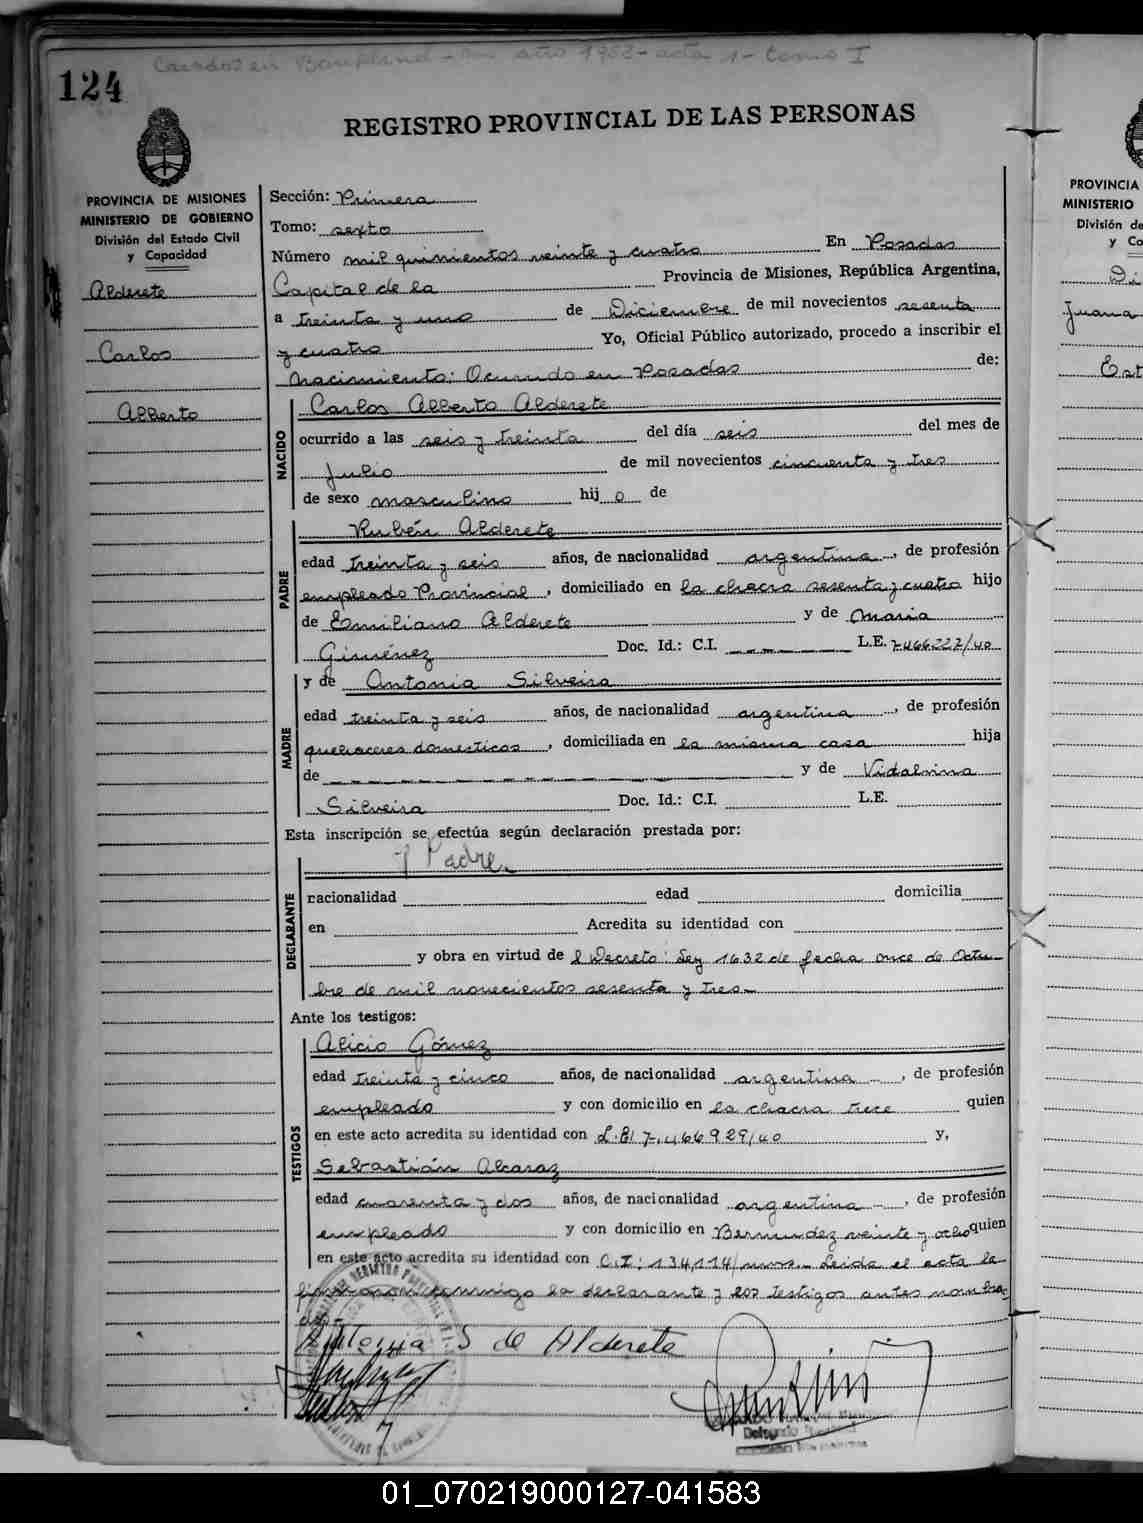 Casados en Bonpland - en año 1953 - acta 1 - tomo I
124
REGISTRO PROVINCIAL DE LAS PERSONAS
PROVINCIA DE MISIONES
MINISTERIO DE GOBIERNO
División del Estado Civil
y Capacidad
Alderete
Carlos
Alberto
Sección: Primera
Tomo: sexto
Número mil quinientos veinte y cuatro En Posadas
Capital de la Provincia de Misiones, República Argentina,
a treinta y uno de Diciembre de mil novecientos sesenta
y cuatro Yo, Oficial Público autorizado, procedo a inscribir el
Nacimiento: Ocurrido en Posadas de:
NACIDO
Carlos Alberto Alderete
ocurrido a las seis y treinta del día seis del mes de
Julio de mil novecientos cincuenta y tres
de sexo masculino hij o de
PADRE
Rubén Alderete
edad treinta y seis años, de nacionalidad argentina, de profesión
empleado Provincial, domiciliado en la chacra sesenta y cuatro hijo
de Emiliano Alderete y de Maria
Giménez Doc. Id.: C.I. L.E. 7466222/40
MADRE
y de Antonia Silveira
edad treinta y seis años, de nacionalidad argentina, de profesión
quehaceres domesticos, domiciliada en la misma casa hija
de y de Vidalvina
Silveira Doc. Id.: C.I. L.E.
Esta inscripción se efectúa según declaración prestada por:
DECLARANTE
Padre
nacionalidad edad domicilia
en Acredita su identidad con
y obra en virtud de l Decreto: Ley 1632 de fecha once de Octu-
bre de mil novecientos sesenta y tres.-
Ante los testigos:
TESTIGOS
Alicio Gómez
edad treinta y cinco años, de nacionalidad argentina, de profesión
empleado y con domicilio en la chacra trece quien
en este acto acredita su identidad con L.E/ 7.466929/40 y,
Sebastián Alcaraz
edad cuarenta y dos años, de nacionalidad argentina, de profesión
empleado y con domicilio en Bermudez veinte y ocho quien
en este acto acredita su identidad con C.I: 134,114/ Leida el acta la
firmaron conmigo la declarante y los testigos antes nombra-
dos.-
Antonia S de Alderete
PROVINCIA
MINISTERIO
División de
y Co
Di
Juana
Est
01_070219000127-041583